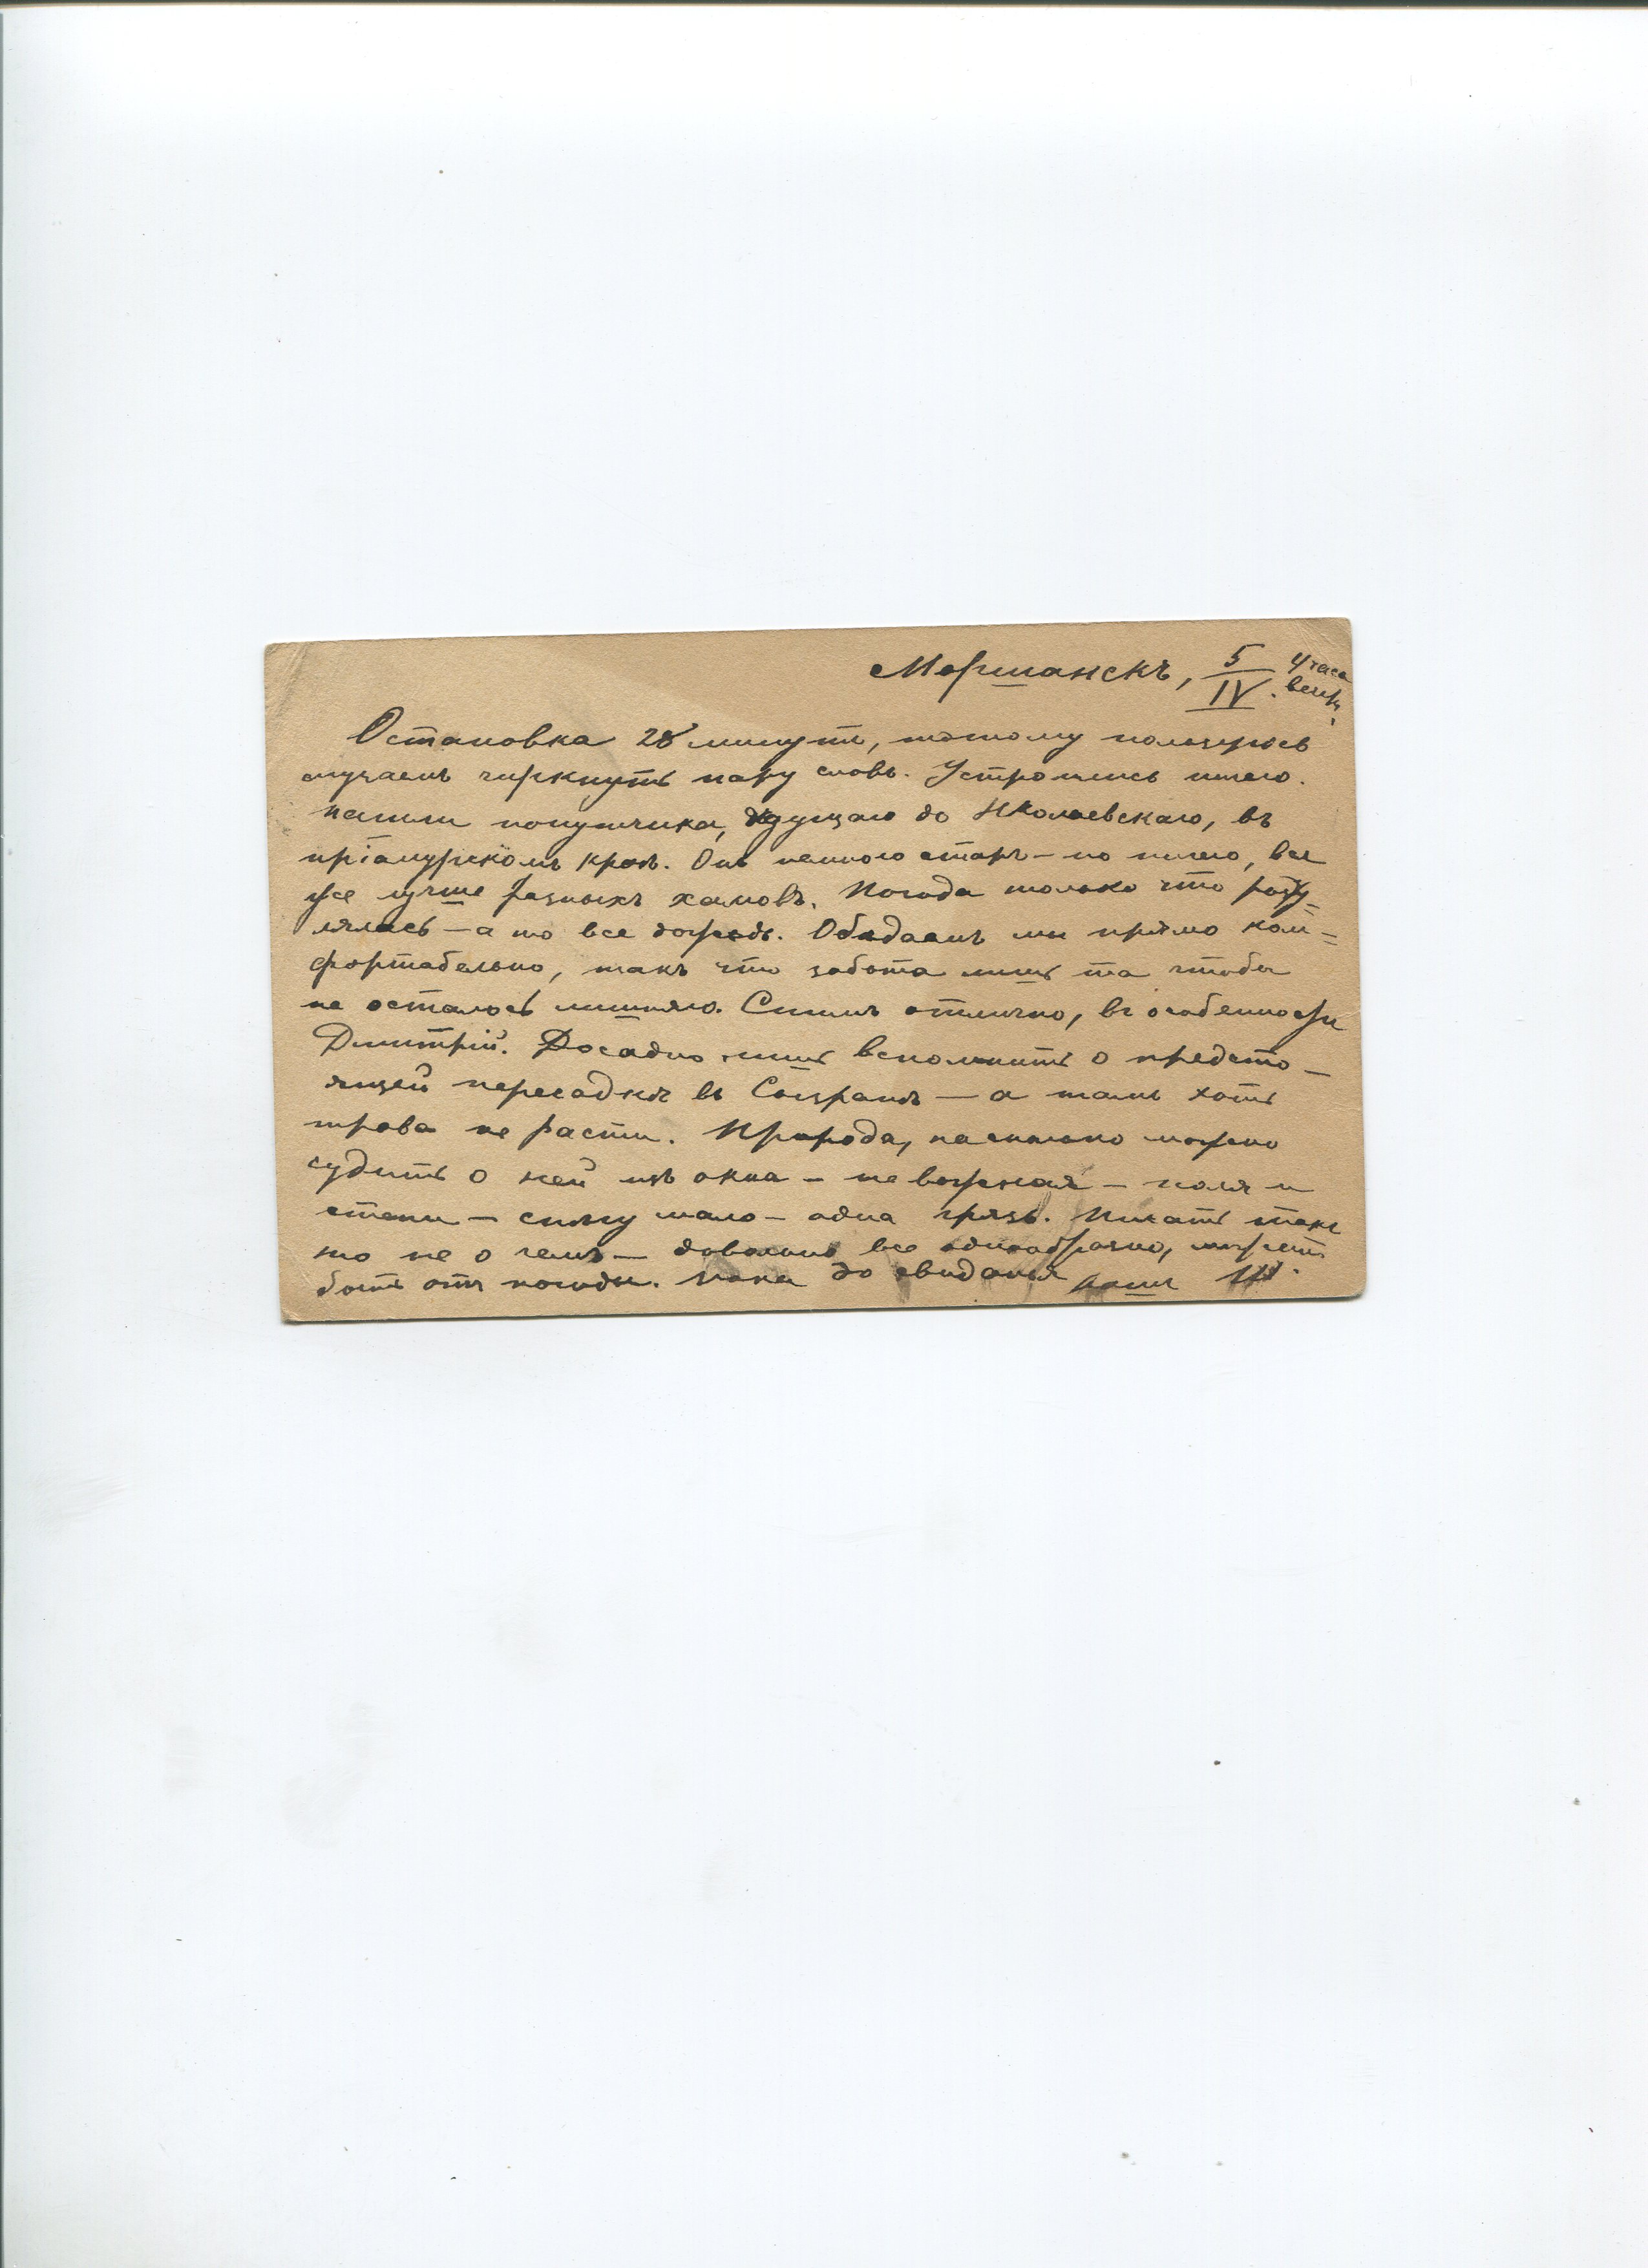 Моршанскъ, 5/IV. 4 часа вечер.
Остановка 28 минутъ, потому пользуюсь
случаемъ чиркнуть пару словъ. Устроились ничего.
Нашли попутчика, ѣдущаго до Николаевскаго, въ
пріамурскомъ краѣ. Онъ немного старъ – но ничего, все
же лучше разныхъ хамовъ. Погода только что разгу=
лялась – а то все дождь. Обѣдаемъ мы прямо ком=
фортабельно, такъ что забота лишь та чтобы
не осталось лишняго. Спимъ отлично, въ особенности
Дмитрій. Досадно лишь вспомнить о предсто–
ящей пересадкѣ въ Сызрани – а тамъ хоть
трава не расти. Природа, насколько можно
судить о ней изъ окна – не важная – поля и
степи – снѣгу мало – одна грязь. Писать пока
то не о чемъ – довольно все однообразно, можетъ
быть отъ погоды. Пока до свиданья Вашъ Ш.